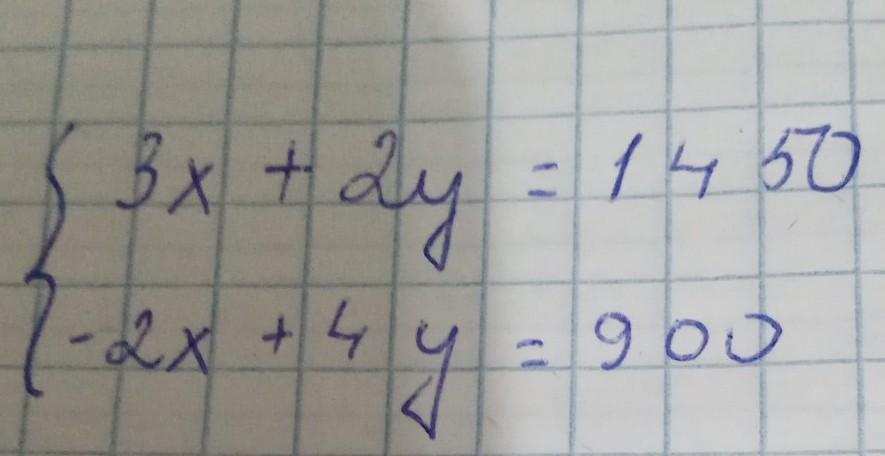 3x + 2y = 1450
-2x + 4y = 900